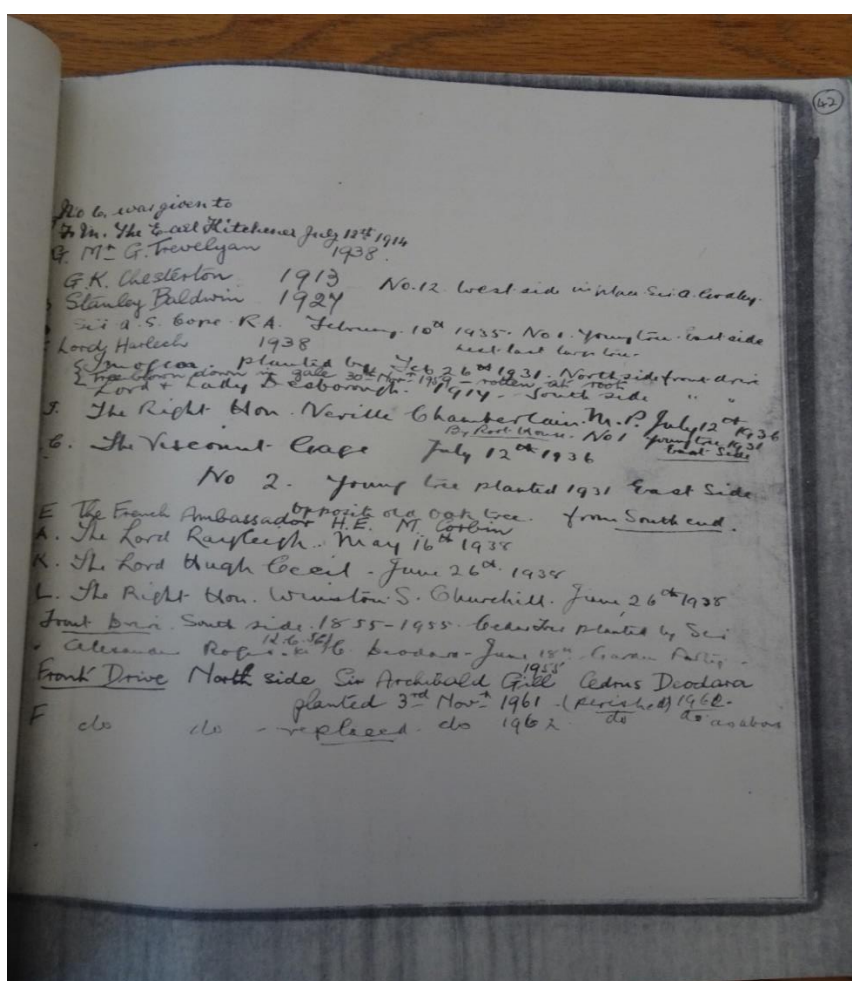 42
No 6. was given to
F.M. The Earl Kitchener July 12th 1914
G. Mr G. Trevelyan 1938.
G.K. Chesterton 1913 No. 12 West side in place Sir A. Cordley.
Stanley Baldwin 1927
Sir A. S. Cope. R.A. February 10th 1935 - No 1. Young tree East side
Lord Harlech 1938 next last large tree.
planted by Feb 26th 1931. North side front drive
tree blown down in gale 30th Nov. 1959 - rotten at root
Lord & Lady Desborough. 1914 - South side " "
J. The Right Hon. Neville Chamberlain. M.P. July 12th 1936
By Root House. No 1 Young tree 1931 East Side
C. The Viscount Gage July 12th 1936
No 2. Young tree planted 1931 East Side
opposite old oak tree. from South end.
E The French Ambassador H.E. M. Corbin
A. The Lord Rayleigh. May 16th 1938
K. The Lord Hugh Cecil - June 26th 1938
L. The Right Hon. Winston S. Churchill. June 26th 1938
Front Drive. South side. 1855-1955. Cedar Tree planted by Sir
Alexander Deodara - June 18th Garden Party -
1955
Front Drive North side Sir Archibald Gill Cedrus Deodara
planted 3rd Novr 1961 (perished) 1962.
F do do - replaced. do 1962 do do as above